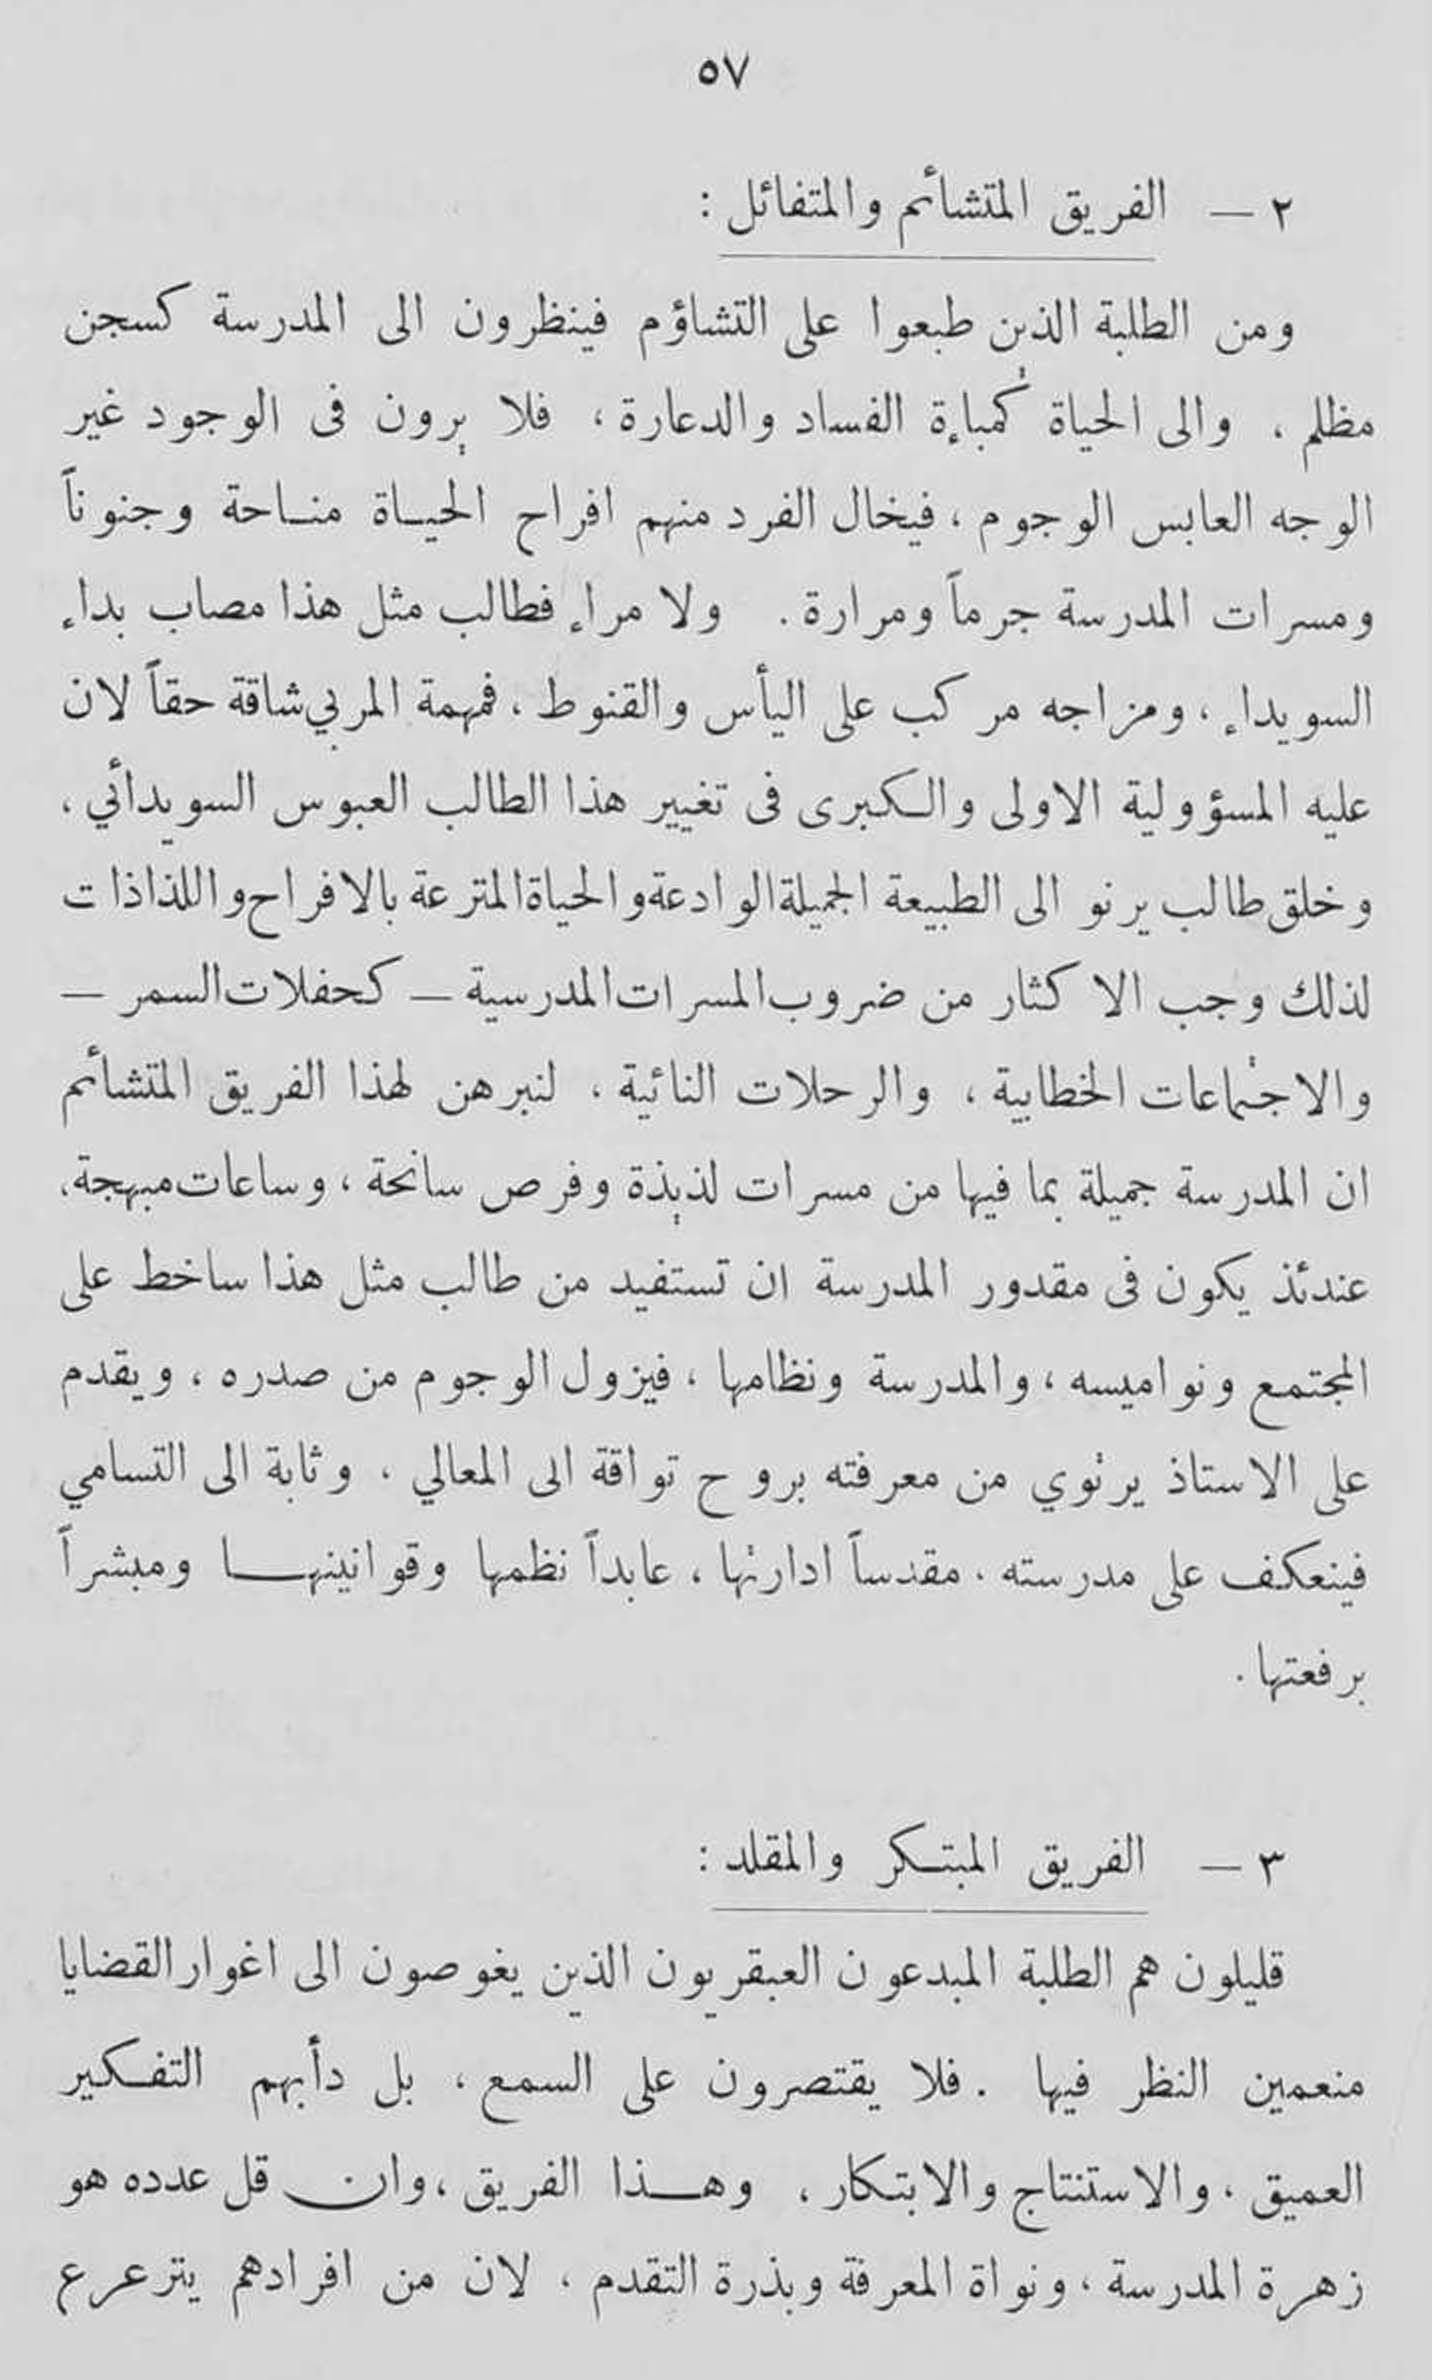 ٥٧
٢ — الفريق المتشائم والمتفائل :
ومن الطلبة الذين طبعوا على التشاؤم فينظرون الى المدرسة كسجن
مظلم ، والى الحياة كمباءة الفساد والدعارة ، فلا يرون في الوجود غير
الوجه العابس الوجوم ، فيخال الفرد منهم افراح الحياة مناحة وجنوناً
ومسرات المدرسة جرماً ومرارة . ولا مراء فطالب مثل هذا مصاب بداء
السويداء ، ومزاجه مركب على اليأس والقنوط ، فمهمة المربي شاقة حقاً لان
عليه المسؤولية الاولى والكبرى في تغيير هذا الطالب العبوس السويدأئي ،
وخلق طالب يرنو الى الطبيعة الجميلة الوادعة والحياة المترعة بالافراح واللذاذات
لذلك وجب الاكثار من ضروب المسرات المدرسية — كحفلات السمر —
والاجتماعات الخطابية ، والرحلات النائية ، لنبرهن لهذا الفريق المتشائم
ان المدرسة جميلة بما فيها من مسرات لذيذة وفرص سانحة ، وساعات مبهجة ،
عندئذ يكون في مقدور المدرسة ان تستفيد من طالب مثل هذا ساخط على
المجتمع ونواميسه ، والمدرسة ونظامها ، فيزول الوجوم من صدره ، ويقدم
على الاستاذ يرتوي من معرفته بروح تواقة الى المعالي ، وثابة الى التسامي
فينعكف على مدرسته ، مقدساً ادارتها ، عابداً نظمها وقوانينها ومبشراً
برفعتها .
٣ — الفريق المبتكر والمقلد :
قليلون هم الطلبة المبدعون العبقريون الذين يغوصون الى اغوار القضايا
منعمين النظر فيها . فلا يقتصرون على السمع ، بل دأبهم التفكير
العميق ، والاستنتاج والابتكار ، وهذا الفريق ، وان قل عدده هو
زهرة المدرسة ، ونواة المعرفة وبذرة التقدم ، لان من افرادهم يترعرع